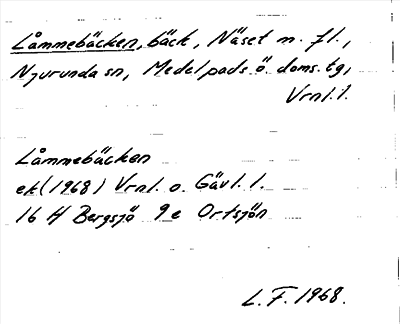 Låmmebäcken, bäck, Näset m. fl.,
Njurunda sn, Medelpads ö. doms. tg,
Vrnl. l.
Låmmebäcken
ek (1968) Vrnl. o. Gävl. l.
16 H Bergsjö 9e Ortsjön
L. F. 1968.